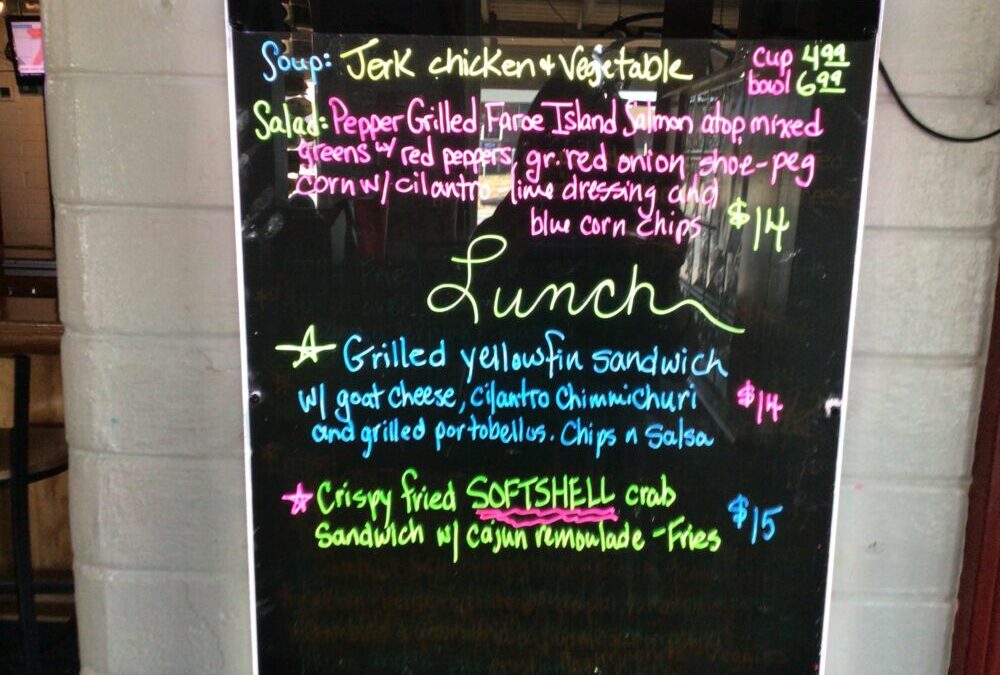 Soup: Jerk chicken + Vegetable cup 4.99
bowl 6.99
Salad: Pepper Grilled Faroe Island Salmon atop mixed
greens w/ red peppers, gr. red onion shoe-peg
corn w/ cilantro lime dressing and
blue corn chips $14
Lunch
Grilled yellowfin sandwich
w/ goat cheese, cilantro Chimmichuri $14
and grilled portobellos. Chips n Salsa
Crispy fried SOFTSHELL crab
Sandwich w/ cajun remoulade - Fries $15